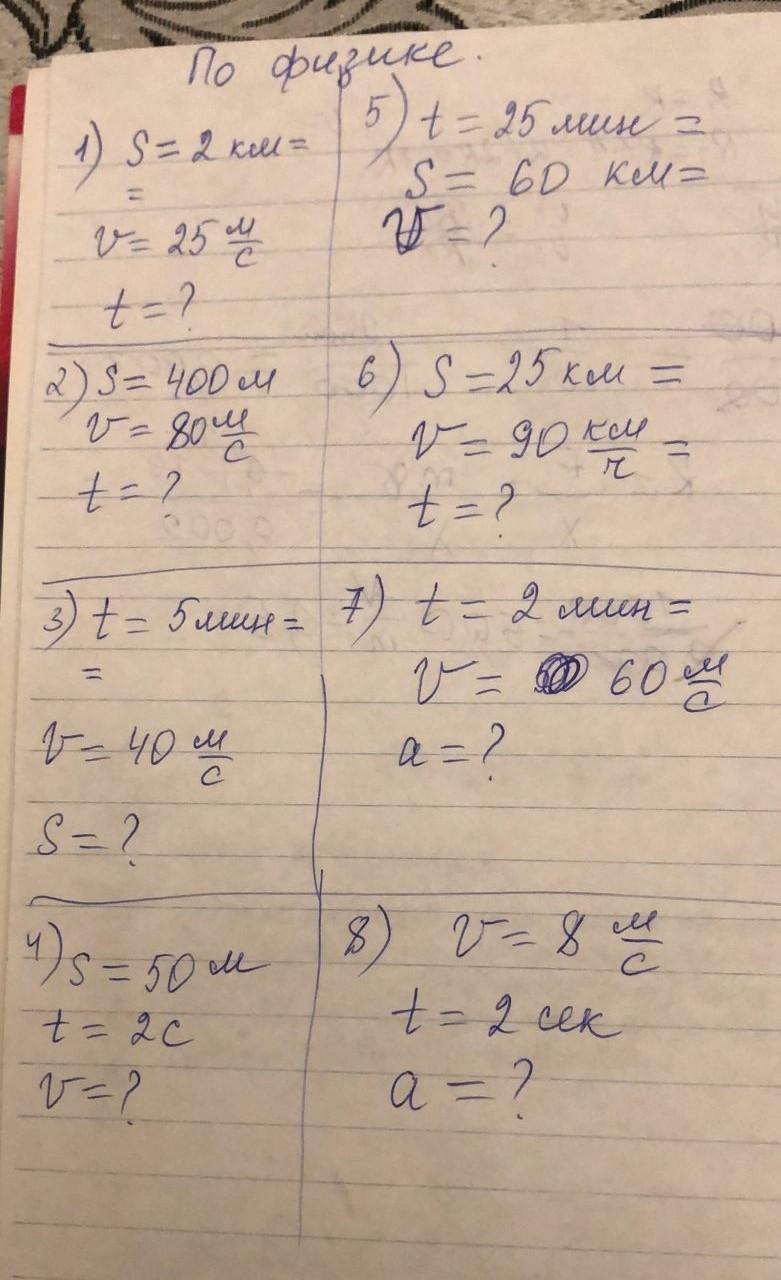 По физике.
1) S = 2 км =
=
v = 25 м/с
t = ?
2) S = 400 м
v = 80 м/с
t = ?
3) t = 5 мин =
=
v = 40 м/с
S = ?
4) S = 50 м
t = 2 с
v = ?
5) t = 25 мин =
S = 60 км =
v = ?
6) S = 25 км =
v = 90 км/ч =
t = ?
7) t = 2 мин =
v = 60 м/с
a = ?
8) v = 8 м/с
t = 2 сек
a = ?